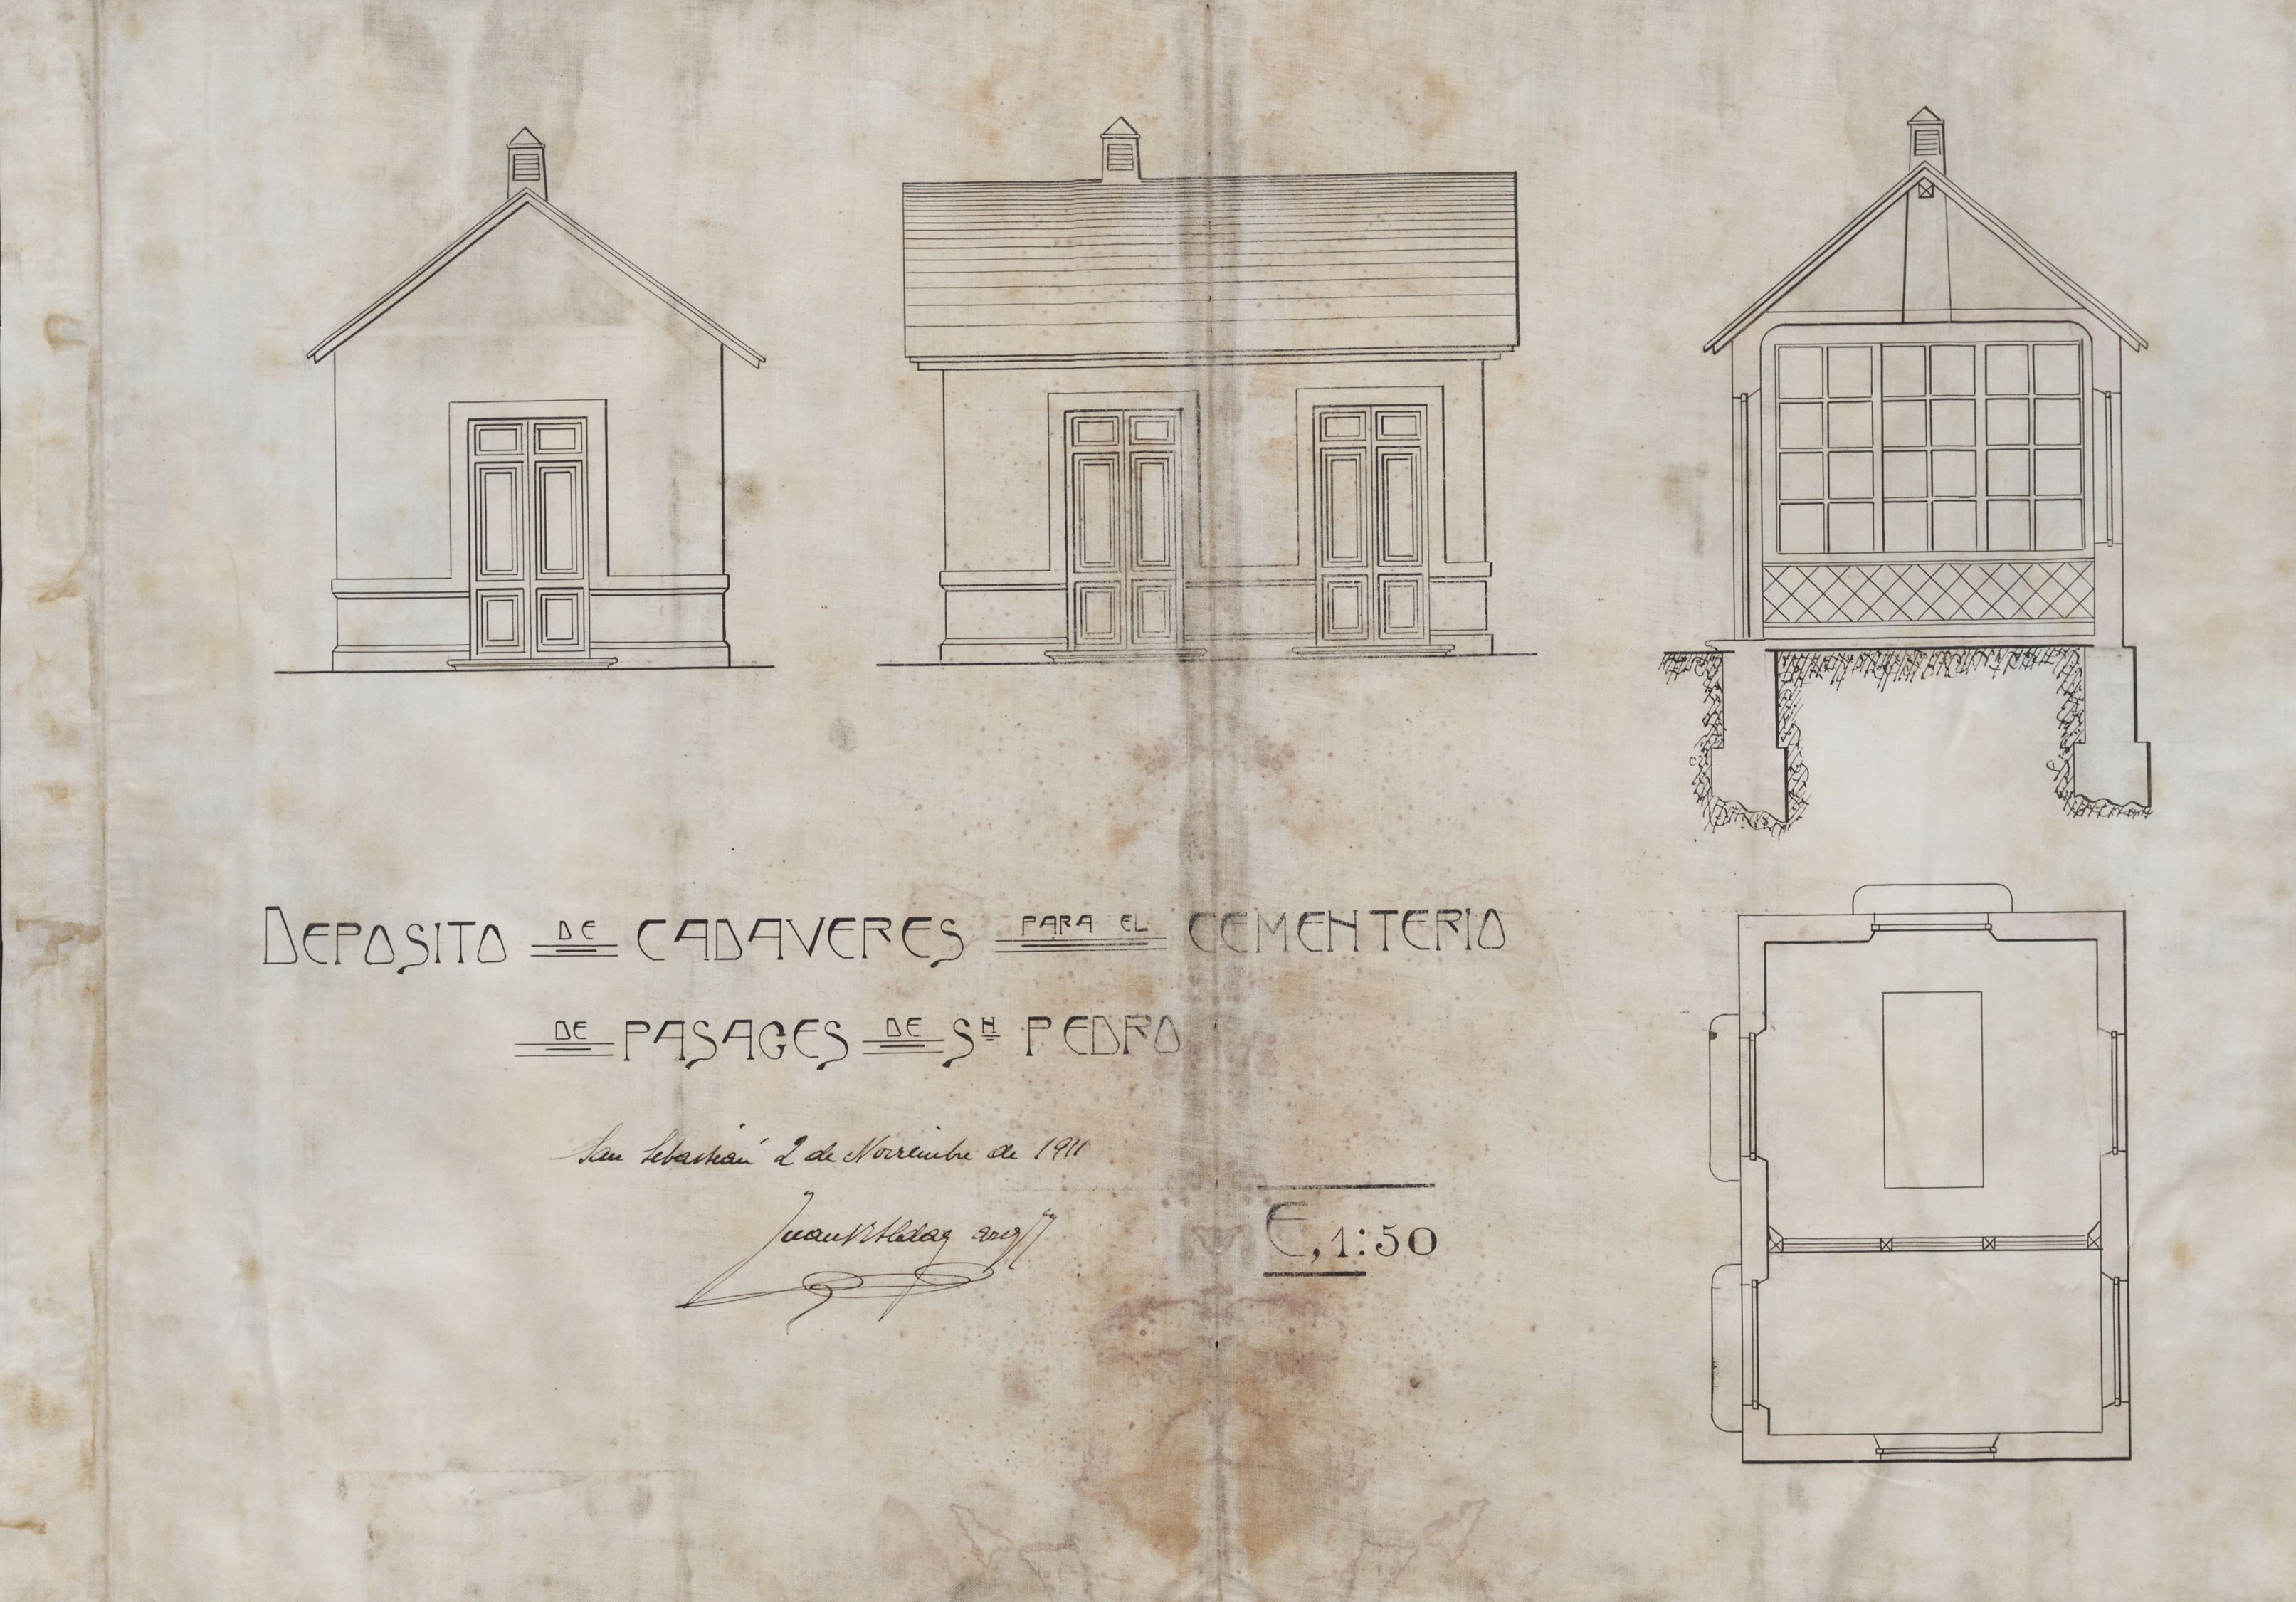 DEPOSITO DE CADAVERES PARA EL CEMENTERIO
DE PASAGES DE Sn PEDRO
San Sebastián 2 de Noviembre de 1911
Juan R Alday
E, 1:50